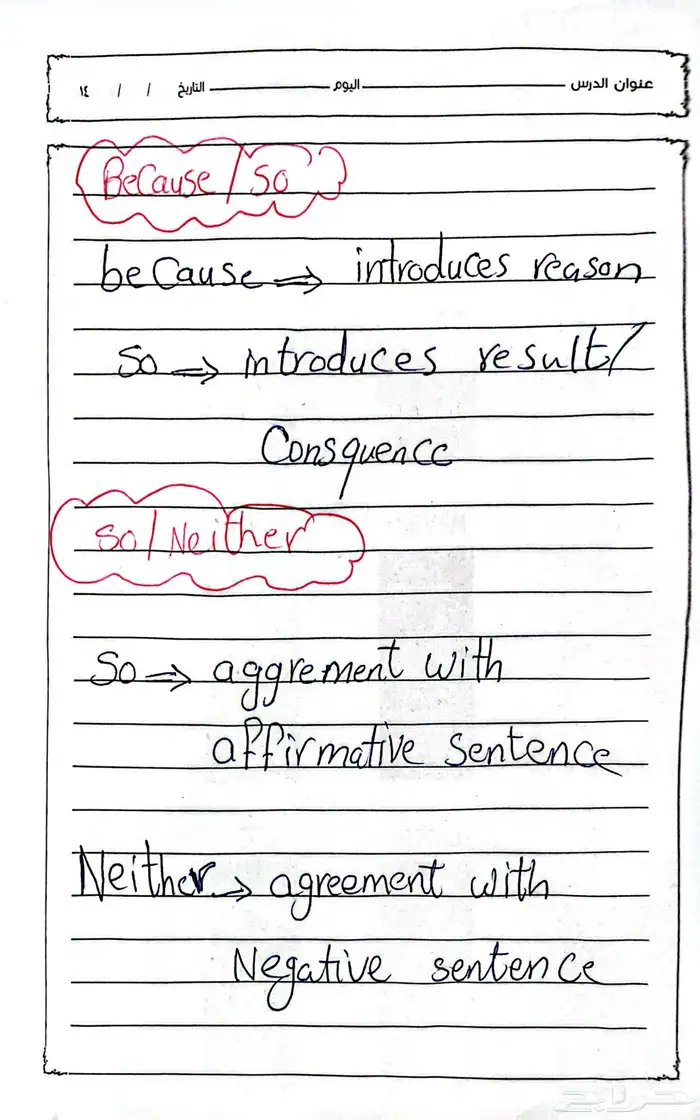 عنوان الدرس ــــــــ اليوم ــــــــ التاريخ / / ١٤
BeCause / So
beCause ⇒ introduces reason
So ⇒ introduces result /
Consquence
So / Neither
So ⇒ aggrement with
affirmative sentence
Neither → agreement with
Negative sentence
حراج